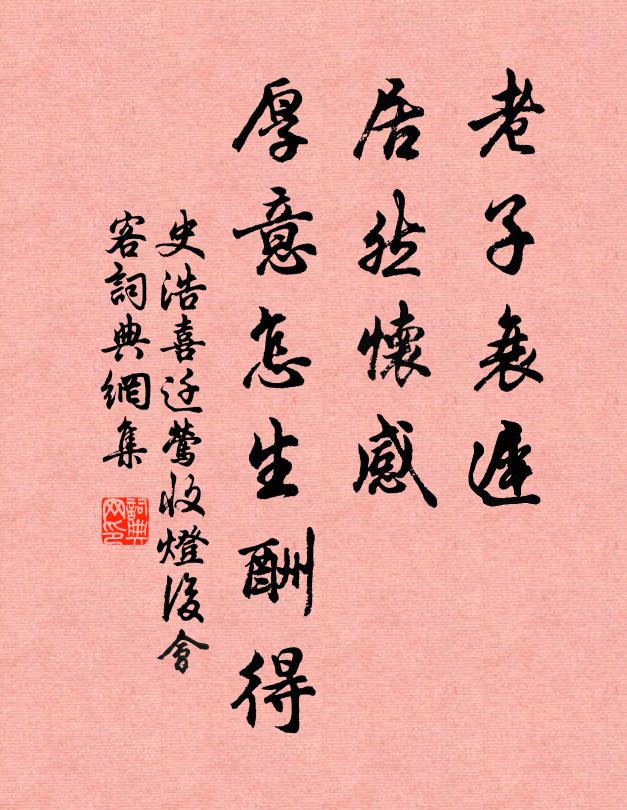 老子衰遲
居然懷感
厚意怎生酬得
史浩喜迁鶯收燈後會
客詞典網集
詞典
网印